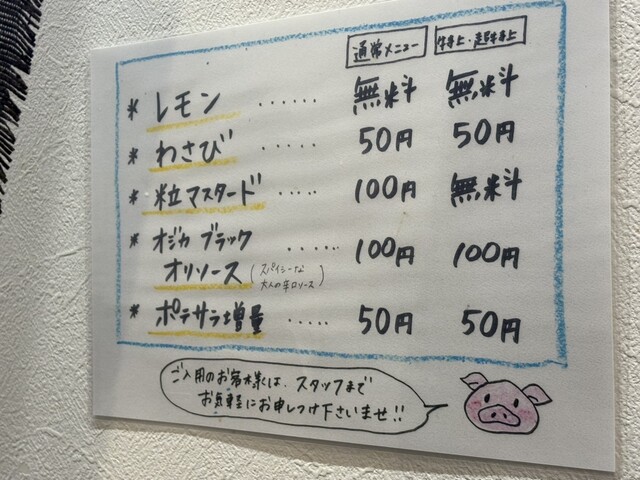 通常メニュー 特上・超特上
* レモン ...... 無料 無料
* わさび ..... 50円 50円
* 粒マスタード ..... 100円 無料
* オジカ ブラック
オリソース (スパイシーな 大人の辛口ソース) ...... 100円 100円
* ポテサラ増量 ..... 50円 50円
ご入用のお客様は、スタッフまで
お気軽にお申しつけ下さいませ!!